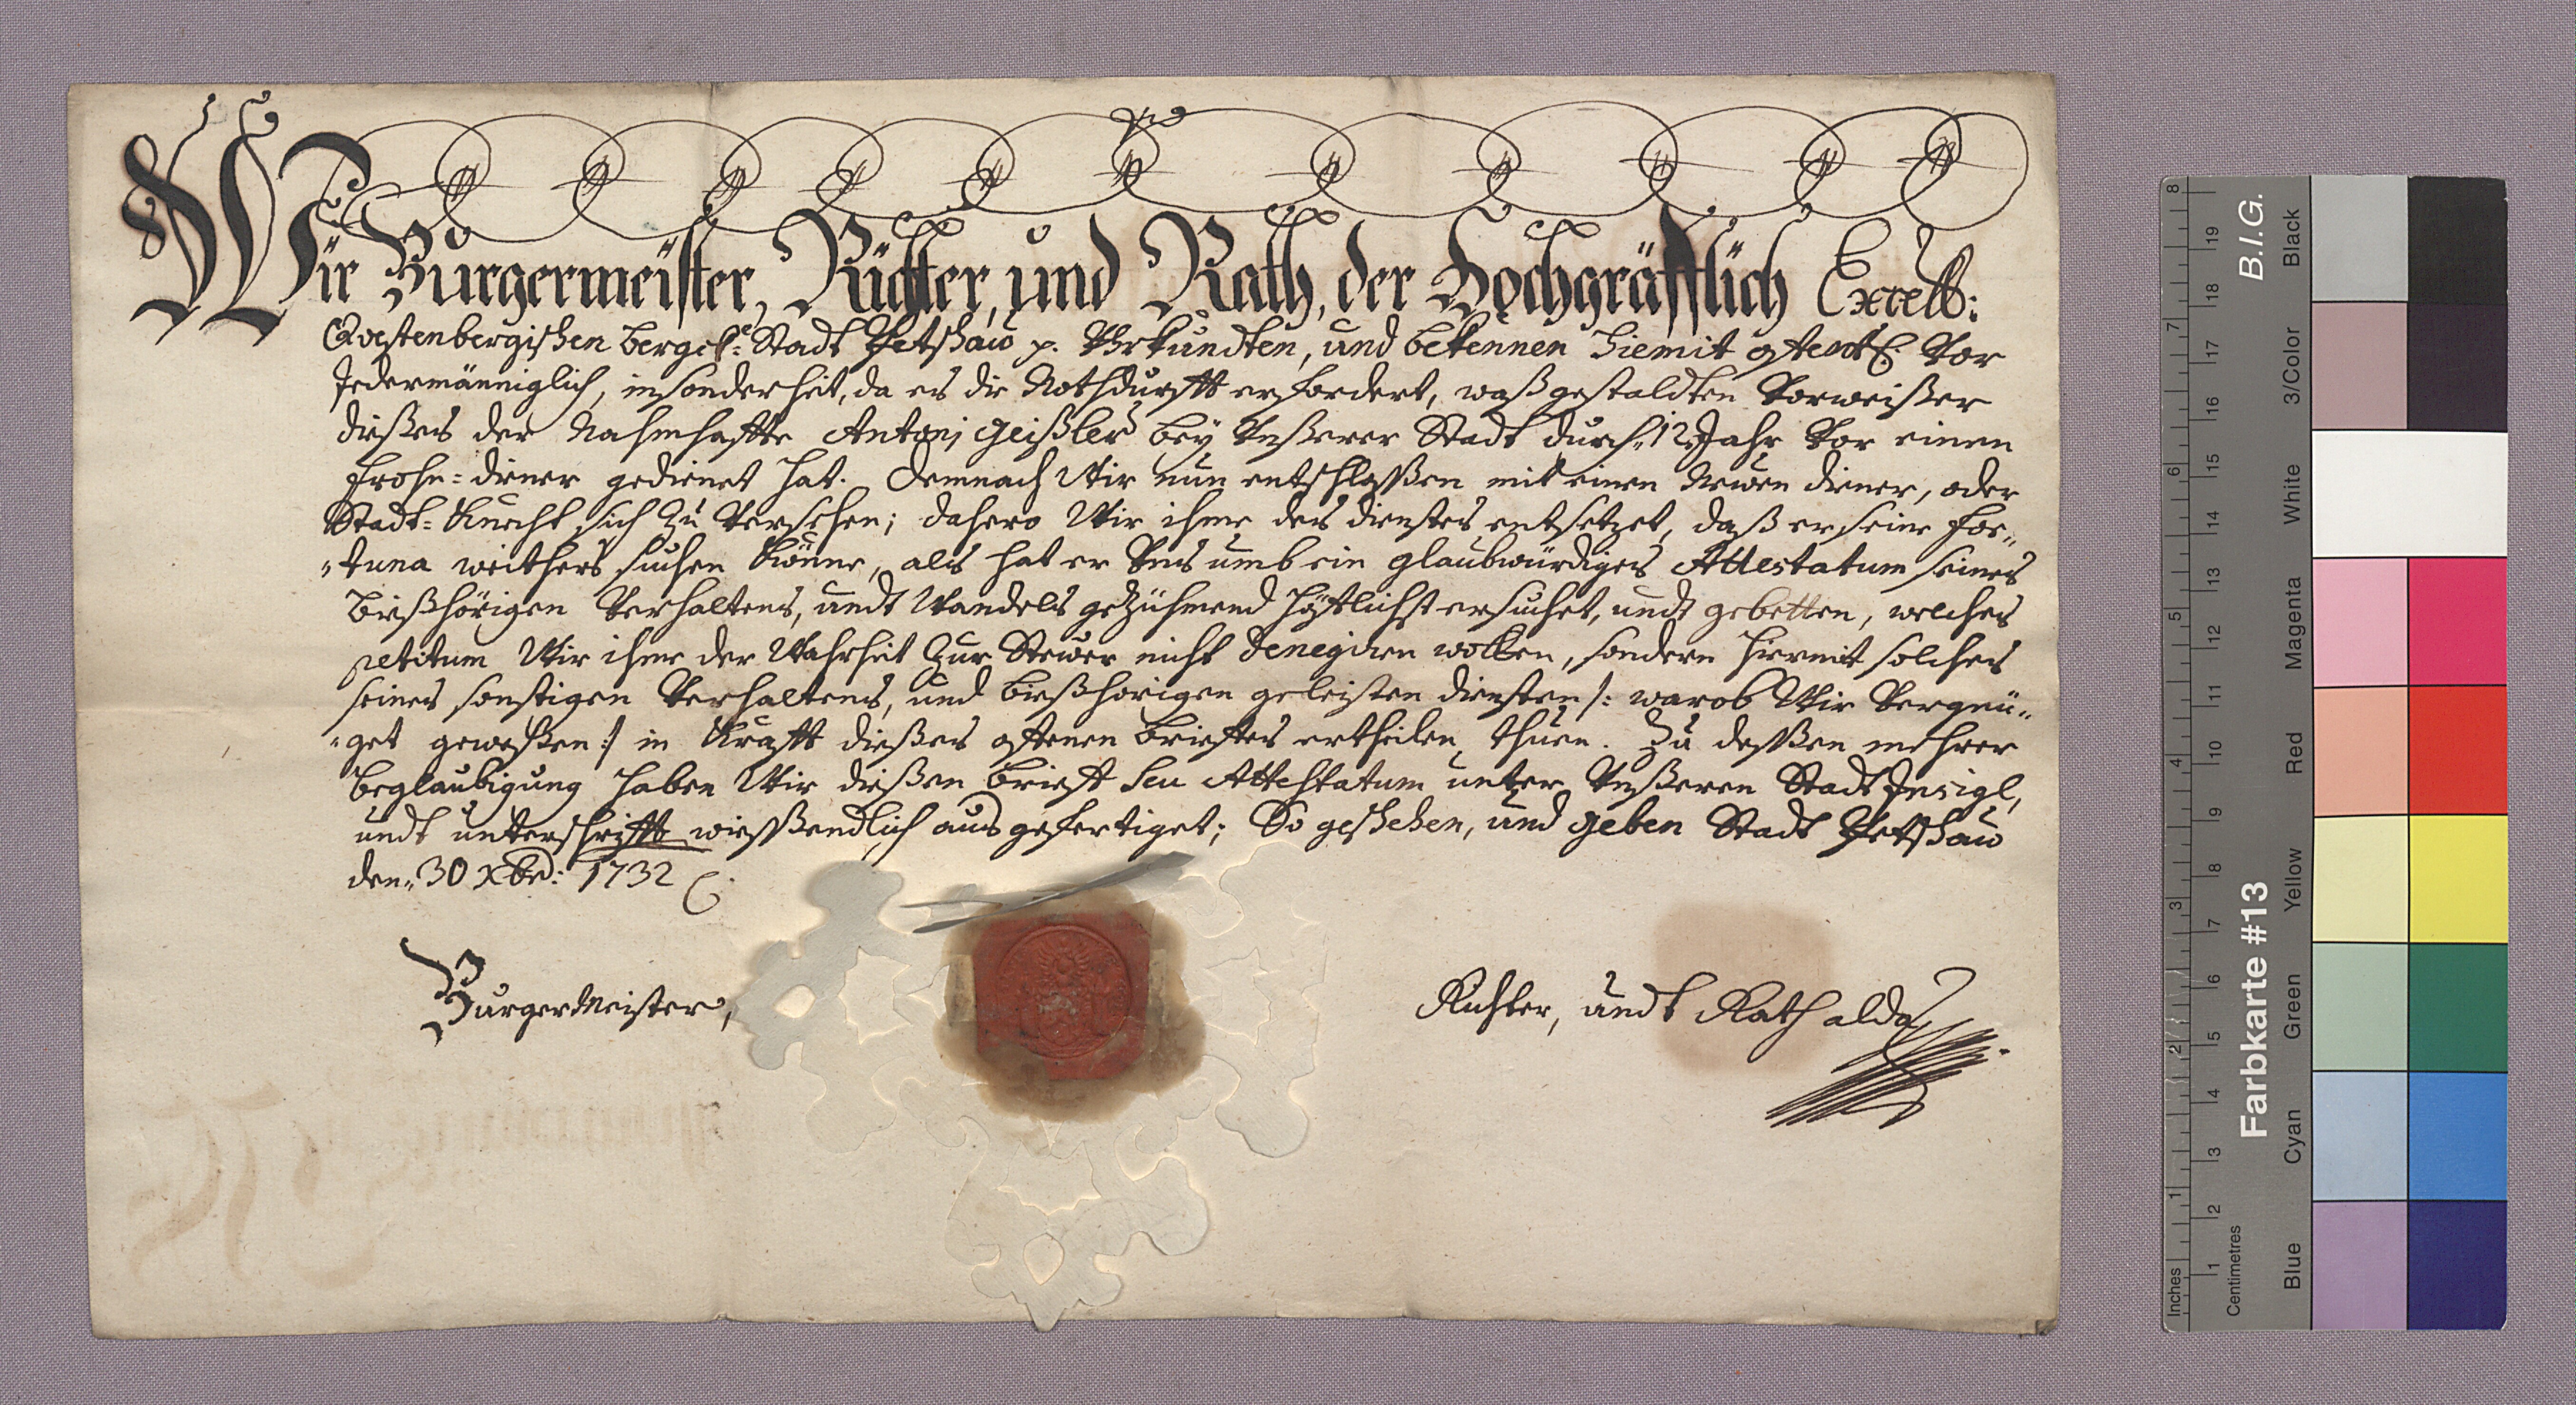 Wir Burgermeister, Richter, und Rath, der Hochgräfflich Excell:
Qvestenbergischen Bergk: Stadt Petschau p. Uhrkundten, und bekennen hiemit offentl. Vor
Jedermänniglich, insonderheit, da es die Nothdurfft erfordert, waß gestaldten Vorweißer
dießes der Nahmhaffte Antonj Geißler bey Unßerer Stadt durch 12 Jahr Vor einen
Frohn=diener gedienet hat. Demnach Wir nun entschloßßen mit einen Neuen diener, oder
Stadt=Knecht sich Zu Versehen; dahero Wir ihme des dienstes entsetzet, daß er seine For„
„tuna weithers suchen könne, als hat er Uns umb ein glaubwürdiges Attestatum seines
bießhörigen Verhaltens, undt Wandels geZühmend höfflichst ersuchet, undt gebetten, welches
petitum Wir ihme der Wahrheit Zur Steuer nicht denegiren wollen, sondern hiermit solches
seines sonstigen Verhaltens, und bießhorigen geleisten diensten /: warob Wir Vergnü„
„get geweßen :/ in Krafft dießes offenen brieffes ertheilen thuen. Zu deßßen mehrer
beglaubigung haben Wir dießen brieff seu Attestatum unter Unßeren Stadt Insigl,
undt unterschrifft wießßendlich ausgefertiget; So geschehen, und geben Stadt Petschau
den„ 30 Xbr: 1732
BurgerMeister,
Richter, undt Rath alda
Inches
Centimetres
1
2
3
4
5
6
7
8
1
2
3
4
5
6
7
8
9
10
11
12
13
14
15
16
17
18
19
Farbkarte #13
B.I.G.
Blue
Cyan
Green
Yellow
Red
Magenta
White
3/Color
Black